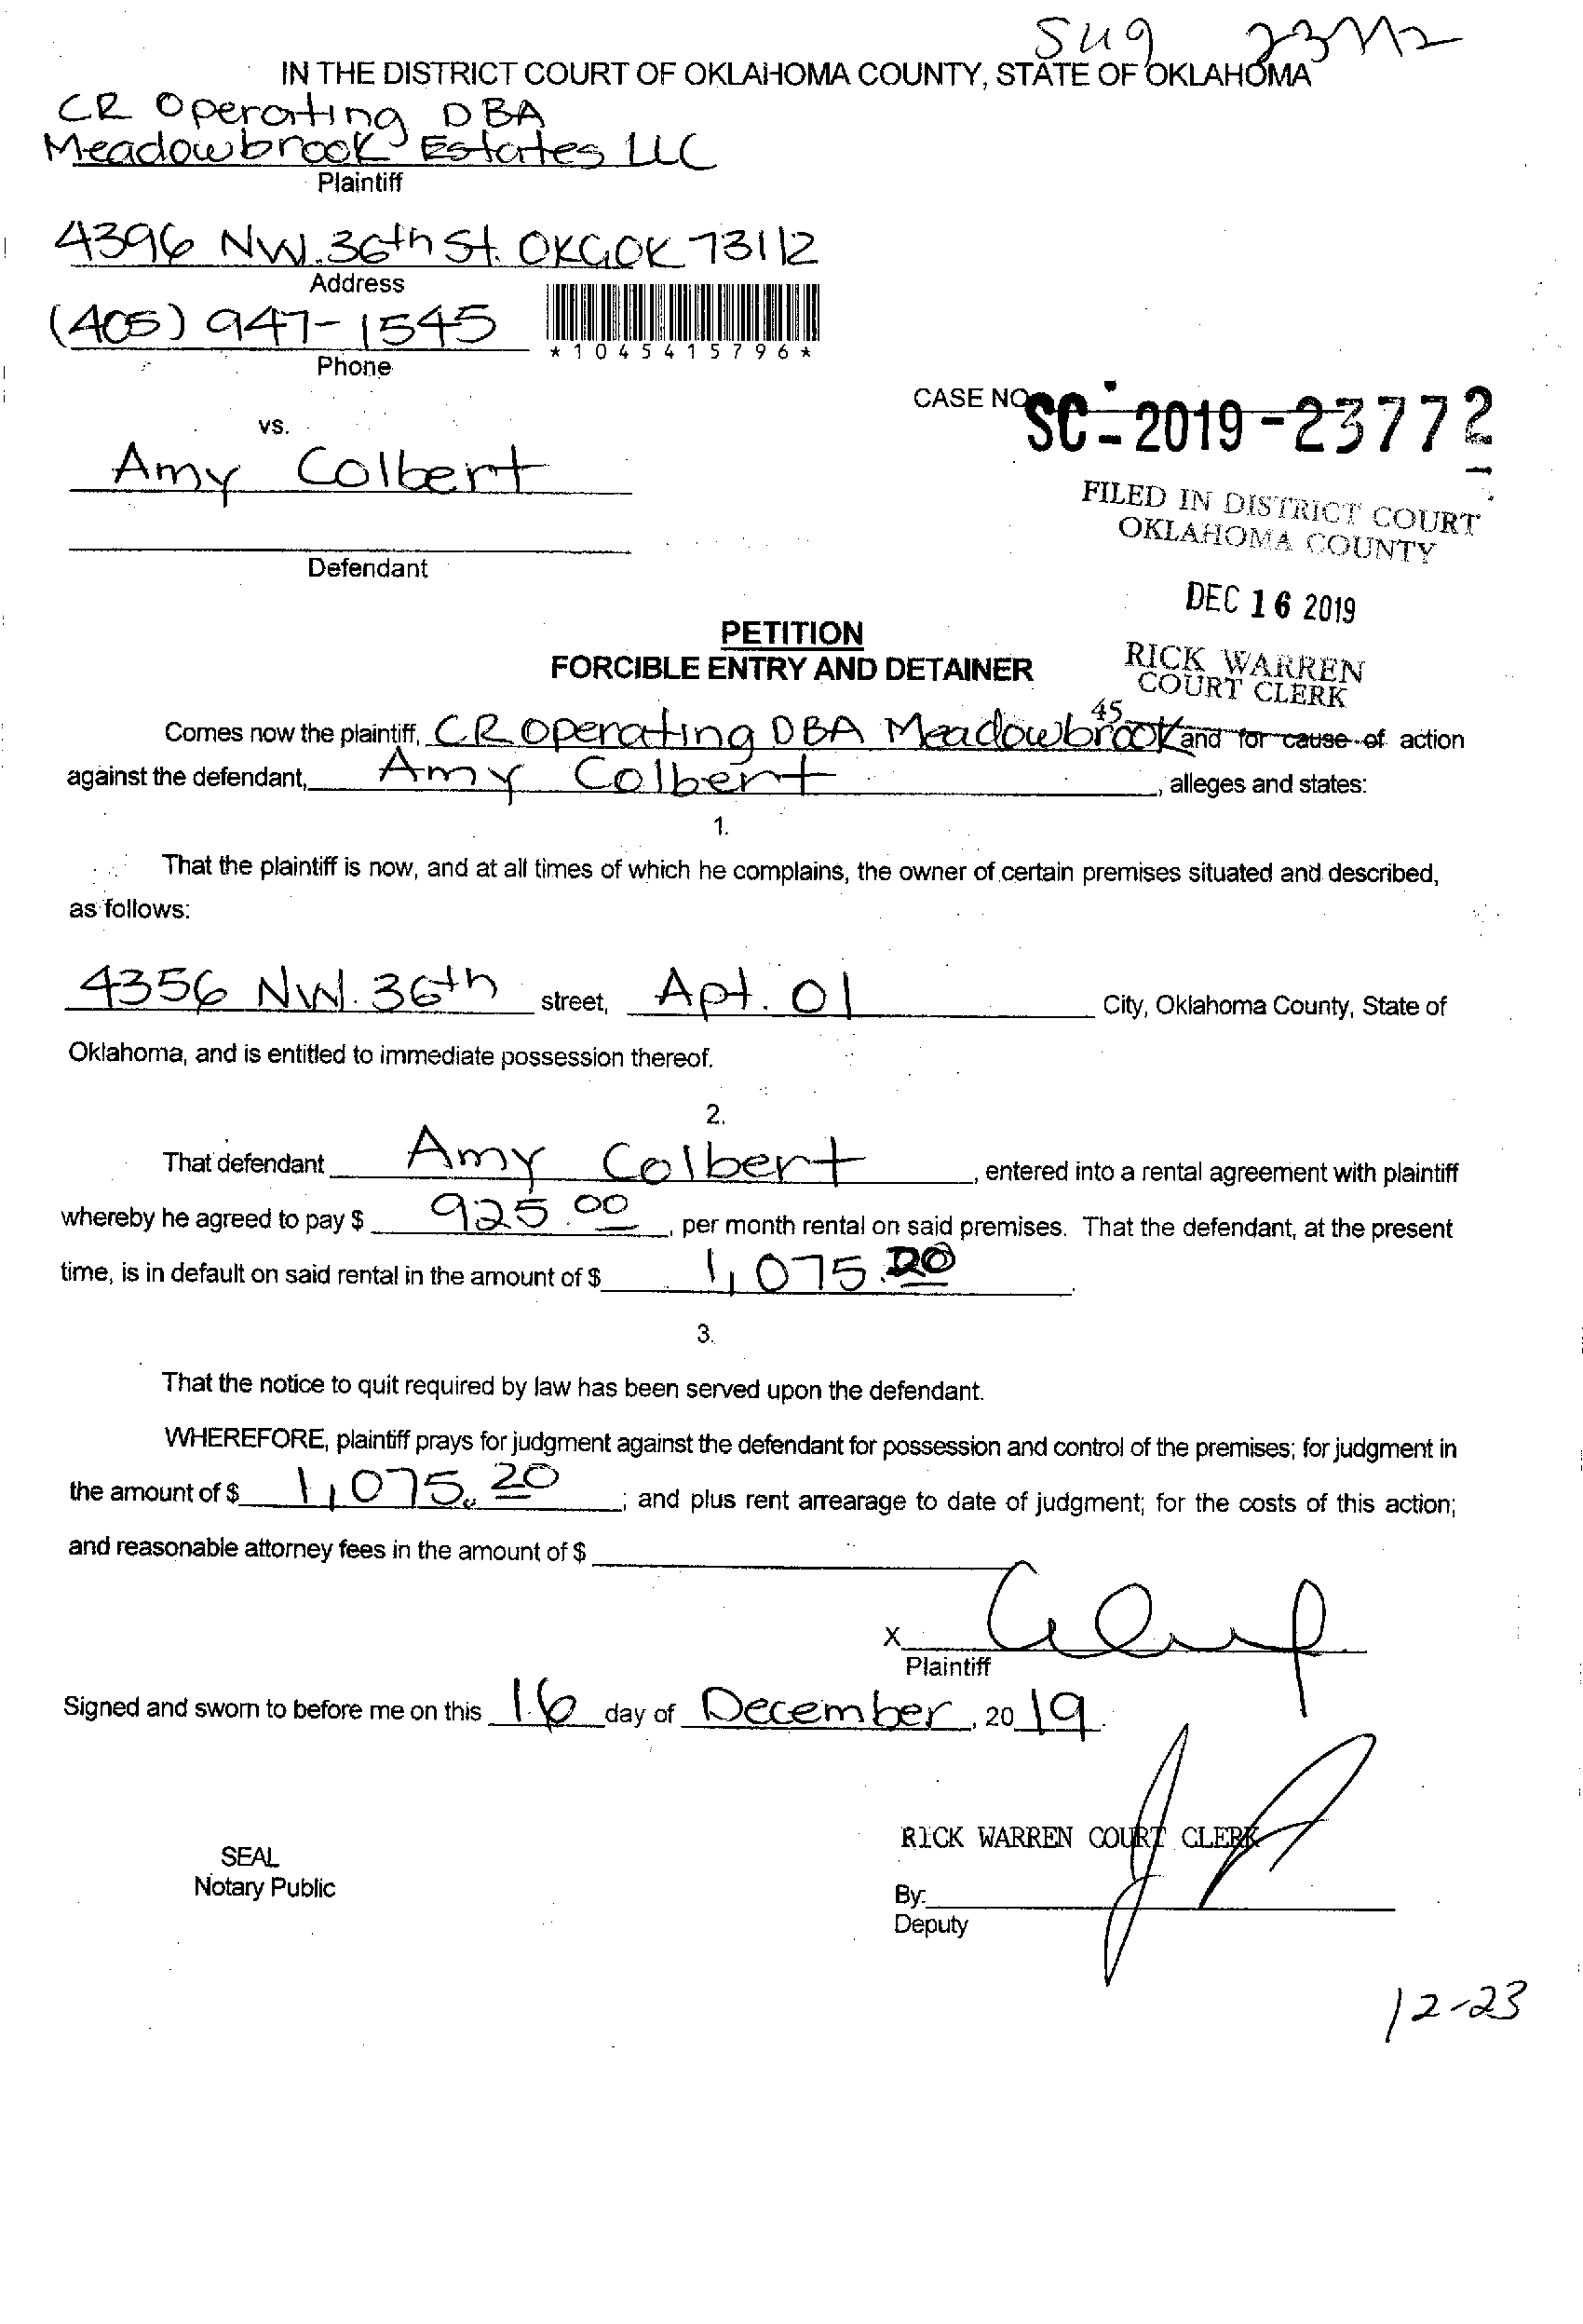 IN THE DISTRICT COURT OF OKLAHOMA COUNTY, STATE OF OKLAHOMA
CR Operating DBA
Meadowbrook Estates LLC
Plaintiff
4396 NW. 36th St. OKC OK 73112
Address
(405) 947-1545
*1045415796*
Phone
CASE NO.
SC-2019-23772
vs.
Amy Colbert
FILED IN DISTRICT COURT
OKLAHOMA COUNTY
Defendant
DEC 16 2019
PETITION
FORCIBLE ENTRY AND DETAINER
RICK WARREN
COURT CLERK
45
Comes now the plaintiff, CR Operating DBA Meadowbrook and for cause of action
against the defendant, Amy Colbert, alleges and states:
1.
That the plaintiff is now, and at all times of which he complains, the owner of certain premises situated and described,
as follows:
4356 NW. 36th street, Apt. 01 City, Oklahoma County, State of
Oklahoma, and is entitled to immediate possession thereof.
2.
That defendant Amy Colbert, entered into a rental agreement with plaintiff
whereby he agreed to pay $ 925.00, per month rental on said premises. That the defendant, at the present
time, is in default on said rental in the amount of $ 1,075.20.
3.
That the notice to quit required by law has been served upon the defendant.
WHEREFORE, plaintiff prays for judgment against the defendant for possession and control of the premises; for judgment in
the amount of $ 1,075.20; and plus rent arrearage to date of judgment; for the costs of this action;
and reasonable attorney fees in the amount of $
X
Plaintiff
Signed and sworn to before me on this 16 day of December, 2019.
RICK WARREN COURT CLERK
SEAL
Notary Public
By:
Deputy
12-23